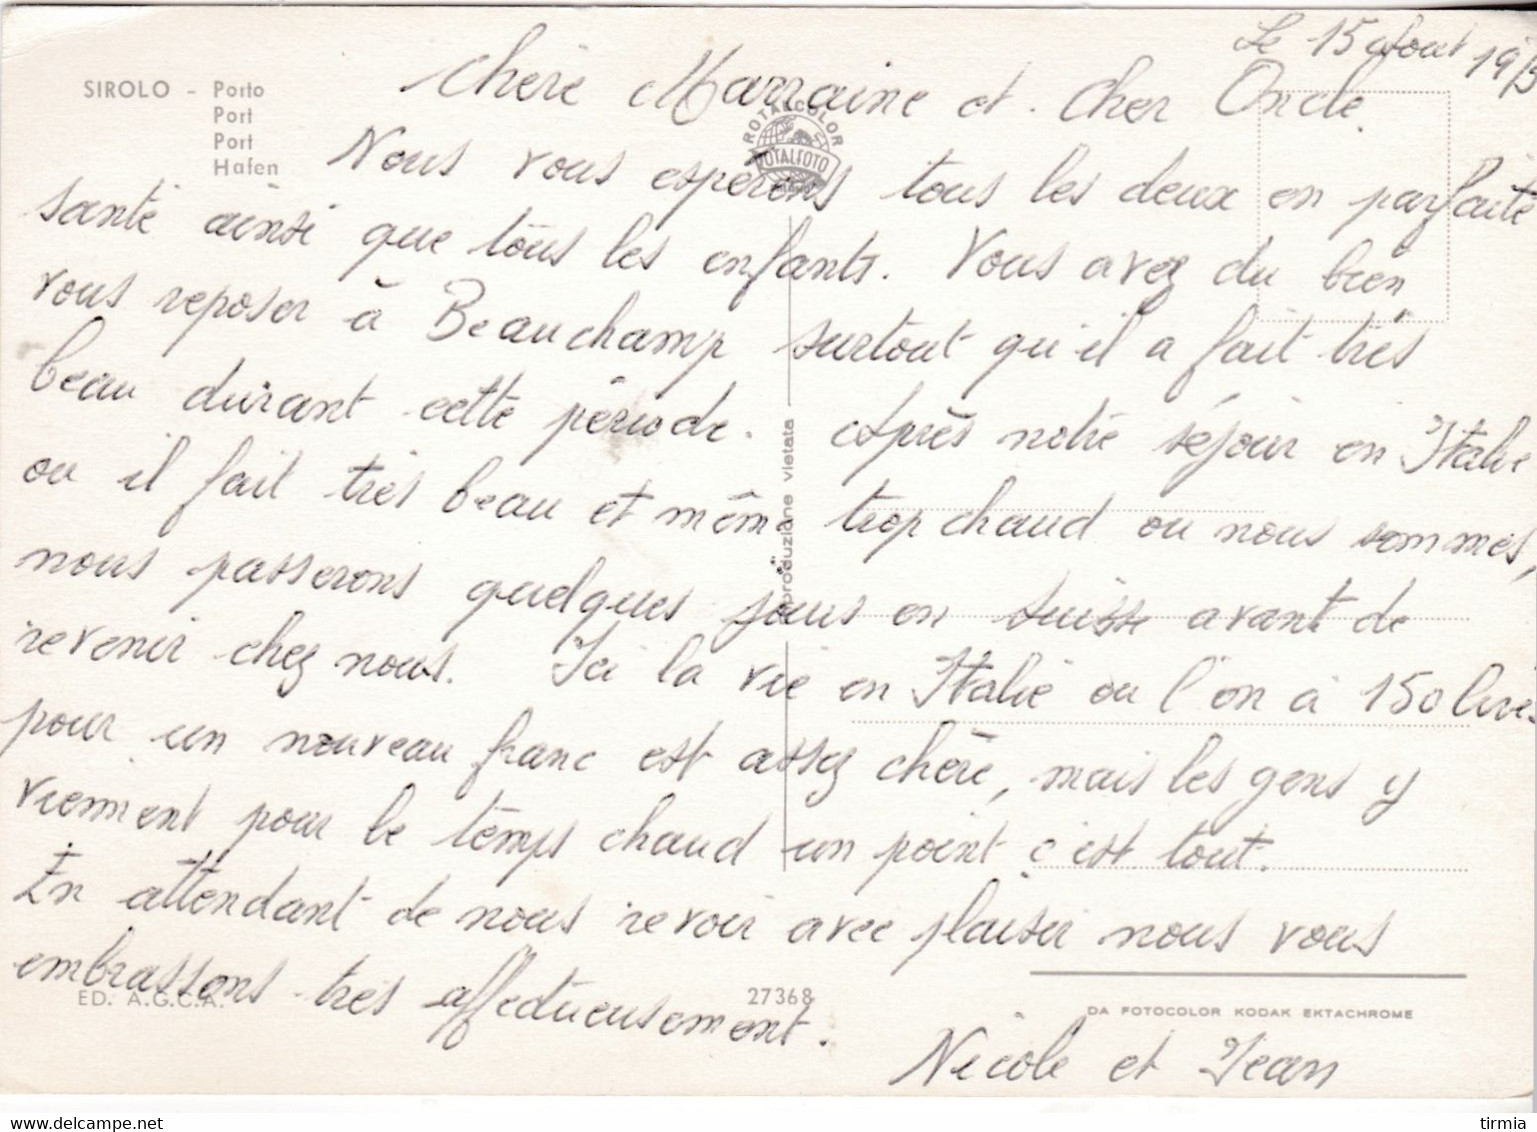 Le 15 aout 1975
SIROLO - Porto
Port
Port
Hafen
chère Marraine et cher Oncle.
ROTALCOLOR
ROTALFOTO
MILANO
Nous vous espérons tous les deux en parfaite
santé ainsi que tous les enfants. Vous avez du bien
vous reposer à Beauchamp surtout qu'il a fait très
beau durant cette période. Après notre séjour en Italie
ou il fait très beau et même trop chaud ou nous sommes,
nous passerons quelques jours en suisse avant de
revenir chez nous. Ici la vie en Italie ou l'on à 150 lires
pour un nouveau franc est assez chère, mais les gens y
viennent pour le temps chaud un point c'est tout.
En attendant de nous revoir avec plaisir nous vous
embrassons très affectueusement.
Nicole et Jean
riproduzione vietata
ED. A.G.C.A.
27368
DA FOTOCOLOR KODAK EKTACHROME
www.delcampe.net
tirmia